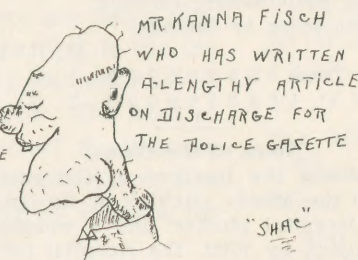 MR KANNA FISCH
WHO HAS WRITTEN
A-LENGTHY ARTICLE
ON DISCHARGE FOR
THE POLICE GAZETTE
"SHAC"